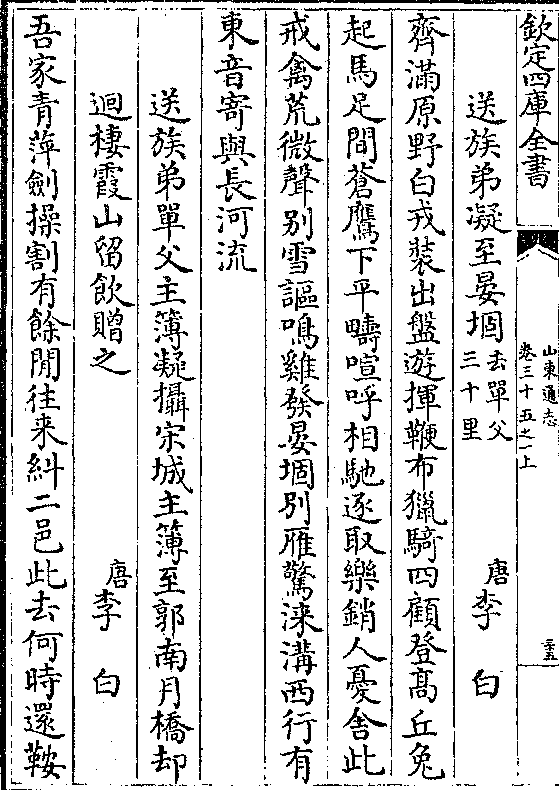 欽定四庫全書
山東通志
卷三十五之一上
送族弟凝至晏堌 去單父三十里 唐李白
齊滿原野白戎裝出盤遊揮鞭布獵騎四顧登髙丘兔
起馬足間蒼鷹下平疇喧呼相馳逐取樂銷人憂舍此
戒禽荒微聲别雪謳鳴雞發晏堌別雁驚淶溝西行有
東音寄與長河流
送族弟單父主簿凝攝宋城主簿至郭南月橋却
迴棲霞山留飲贈之 唐李白
吾家青萍劍操割有餘閒往来糾二邑此去何時還鞍